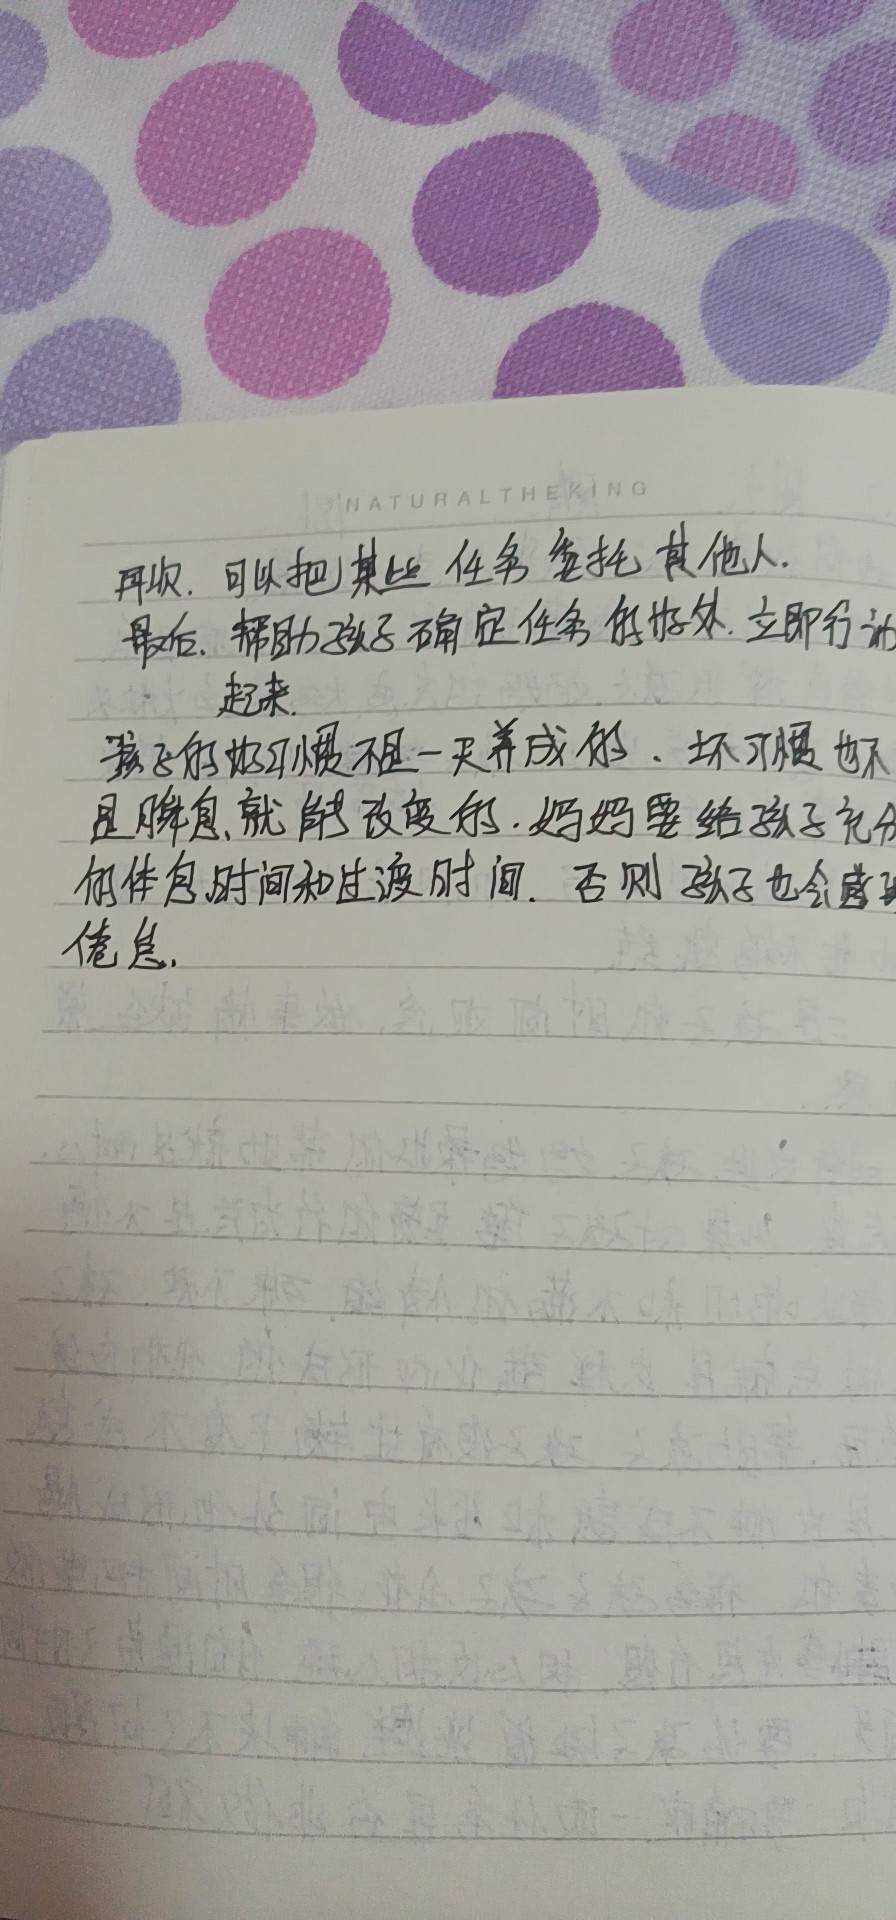 NATURALTHEKING
再次.可以把某些任务委托其他人.
最后.帮助孩子确定任务的好处.立即行动
起来.
孩子的好习惯不是一天养成的、坏习惯也不
是瞬息、就能改变的.妈妈要给孩子充分
的休息时间和过渡时间.否则孩子也会感
倦怠.